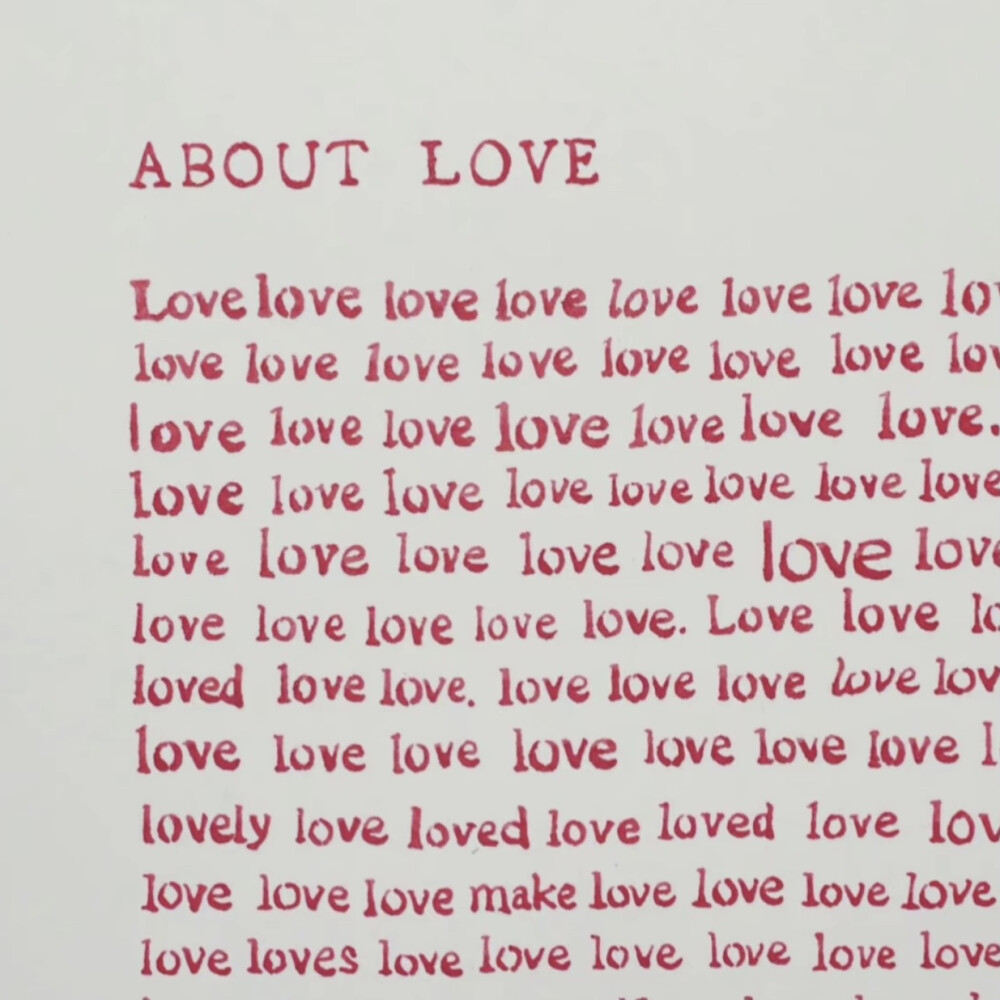 ABOUT LOVE
Love love love love love love love lov
love love love love love love love lov
love love love love love love love.
love love love love love love love love
love love love love love love love
love love love love love. Love love lo
loved love love. love love love love lov
love love love love love love love l
lovely love loved love loved love lov
love love love make love love love love
love loves love love love love love love